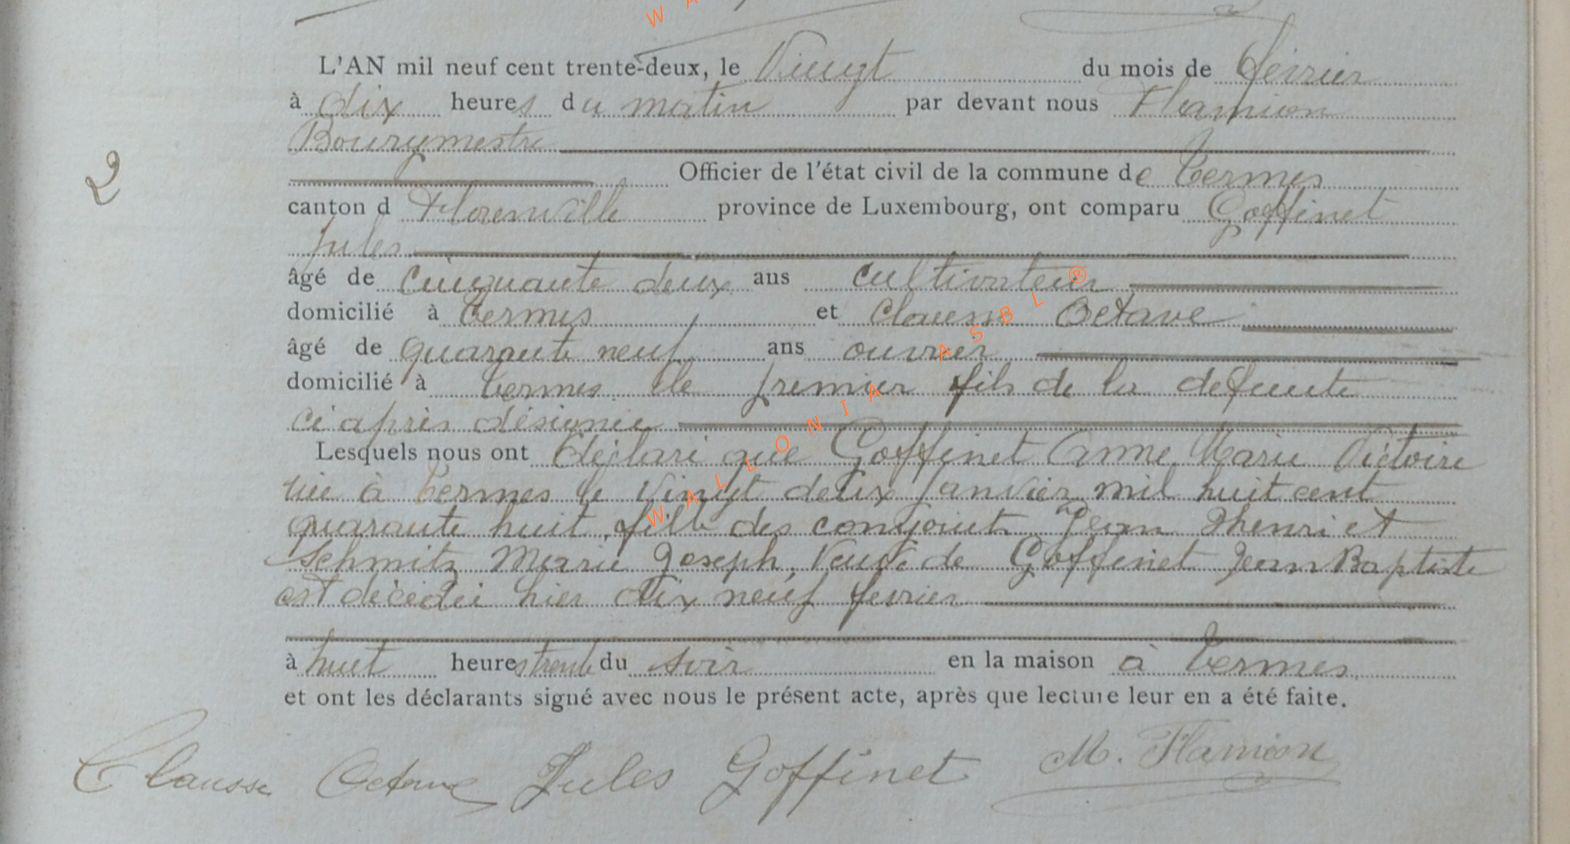 L'AN mil neuf cent trente-deux, le Vingt du mois de février
à dix heures du matin par devant nous Flamion
Bourgmestre
2
Officier de l'état civil de la commune de Termes
canton d Florenville province de Luxembourg, ont comparu Goffinet
Jules
âgé de cinquante deux ans cultivateur
domicilié à Termes et Clausse Octave
âgé de quarante neuf ans ouvrier
domicilié à Termes le premier fils de la defunte
ci après désignée
Lesquels nous ont déclaré que Goffinet Anne Marie Victoire
née à Termes le vingt deux janvier mil huit cent
quarante huit, fille des conjoints Jean Henri et
Schmitz Marie Joseph, Veuve de Goffinet Jean Baptiste
est décédée hier dix neuf fevrier
à huit heures trente du soir en la maison à Termes
et ont les déclarants signé avec nous le présent acte, après que lecture leur en a été faite.
Clausse Octave Jules Goffinet M. Flamion
WALLONIA ASBL ®